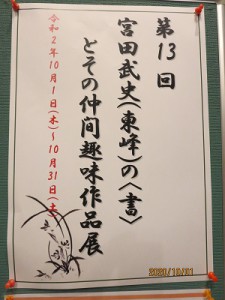 第13回
宮田武史(東峰)の〈書〉
とその仲間趣味作品展
令和2年10月1日(木)~10月31日(土)
2020/10/01